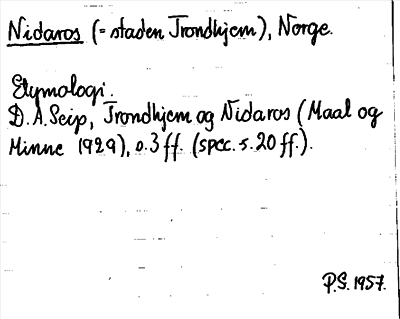 Nidaros (= staden Trondhjem), Norge.
Etymologi.
D. A. Seip, Trondhjem og Nidaros (Maal og
Minne 1929), s. 3 ff. (spec. s. 20 ff.).
P.S. 1957.